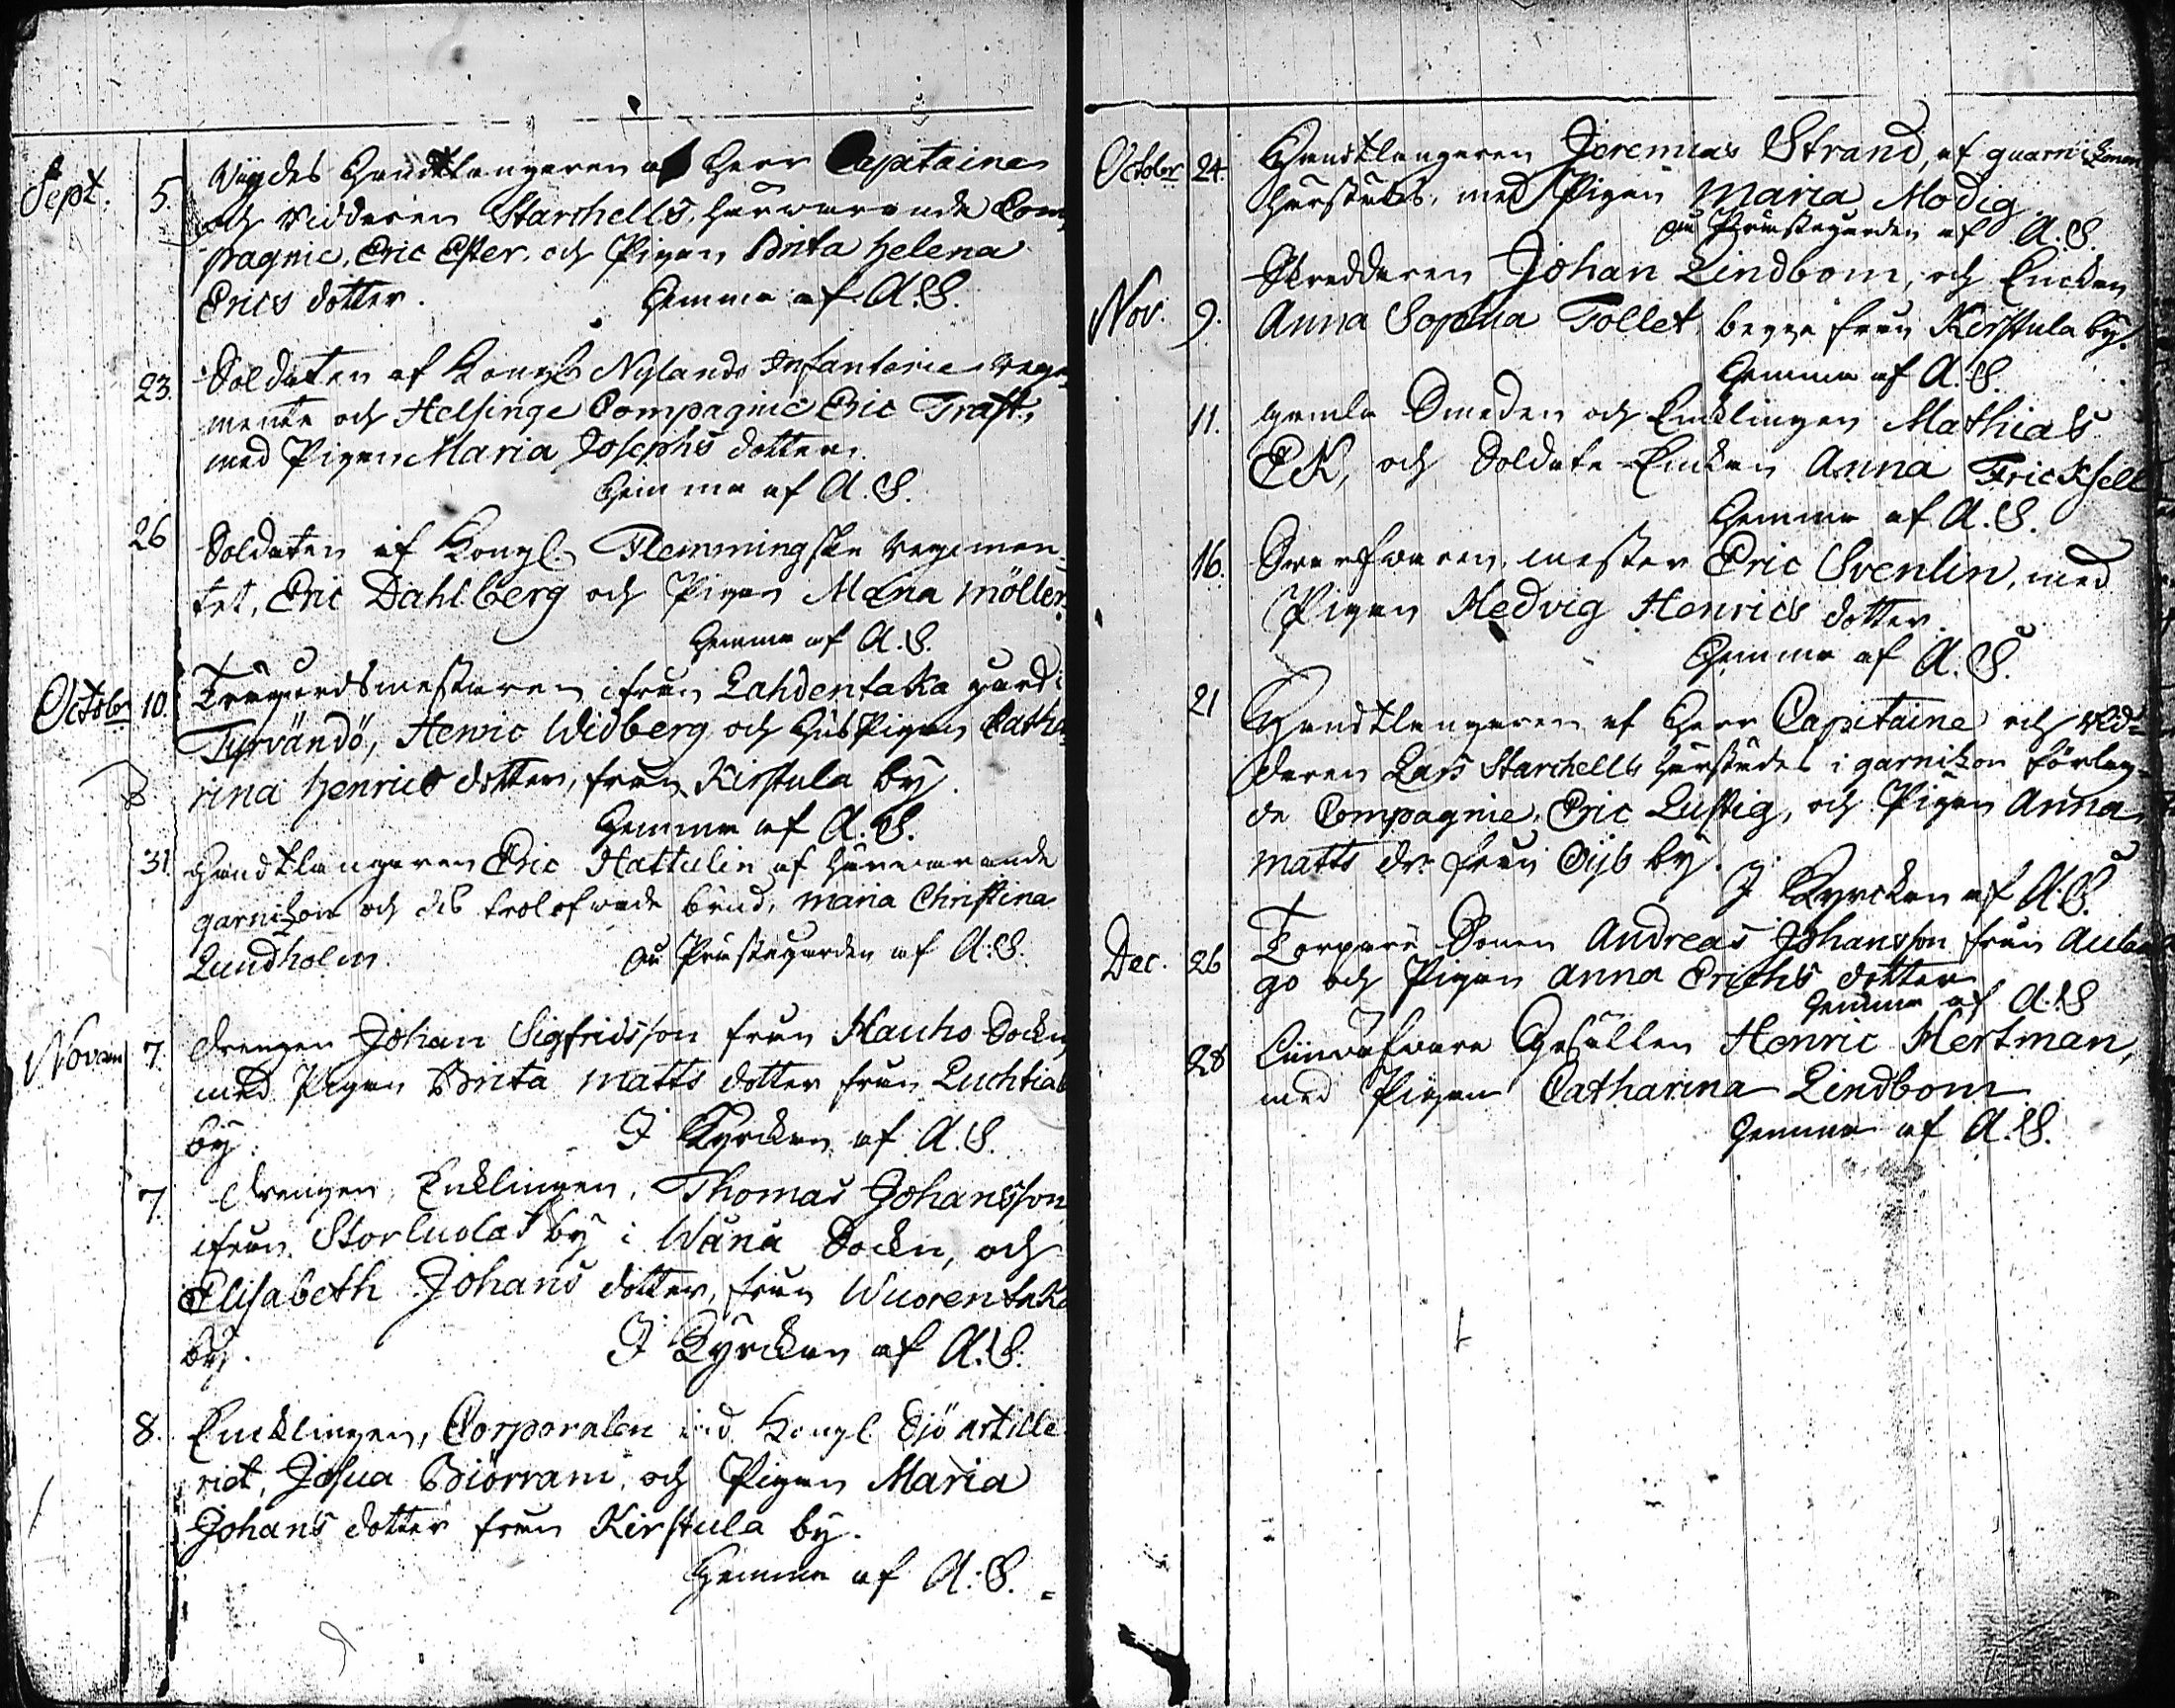 Sept. 5. Vigdes Handtlangaren af Herr Capitaine
och Ridderen Starchells, härvarande Com
pagnie, Eric Ester, och Pigan Brita Helena
Erics dotter. Hemma af A.S.
23. Soldaten af Kongl. Nylands Infanterie rege
mente och Helsinge Compagnie Eric Traft,
med Pigan Maria Josephs dotter.
Hemma af A.S.
26 Soldaten af Kongl. Flemmingske regemen
tet, Eric Dahlberg och Pigan Mæna Möller.
Hemma af A.S.
October 10. Trägårdsmästaren ifrån Lahdentaka gård i
Tyrvändö, Henric Widberg och Hus Pigan Catha
rina Henrics dotter, från Kirstula by.
Hemma af A.S.
31. Handtlangaren Eric Hattulin af härvarande
garnizon och dess trolofvade brud, Maria Christina
Lundholm. På Prästegården af A.S.
Novem 7. drengen Johan Sigfridsson från Hauho Sockn,
med Pigan Brita Matts dotter från Luchtiala
by. I Kyrckan af A.S.
7. drengen, Encklingen, Thomas Johansson
ifrån Storluolas by i Wånå Sockn, och
Elisabeth Johans dotter, från Wuorentaka
by. I Kyrckan af A.S.
8. Encklingen, Corporalen vid Kongl. Sjö Artille
riet, Josua Biörram, och Pigan Maria
Johans dotter från Kirstula by.
Hemma af A.S.
October 24. Handtlangaren Jeremias Strand, af guarnizonen
härstädes, med Pigan Maria Modig.
På Prästegården af A.S.
Skreddaren Johan Lindbom, och Enckan
Nov. 9. Anna Sophia Tollet, begge från Kirstula by.
Hemma af A.S.
11. gamla Smeden och Encklingen Mathias
EK, och Soldate Enckan Anna Fricksell
Hemma af A.S.
16. Svarfvaren, mester Eric Svenlin, med
Pigan Hedvig Henrics dotter.
Hemma af A.S.
21 Handtlangaren af Herr Capitaine och Rid-
daren Lars Starchells härstädes i garnizon förlag-
de Compagnie, Eric Lustig, och Pigan Anna
Matts dr. från Öijs by.
I Kyrckan af A.S.
Dec. 26 Torpare Sonen Andreas Johansson från Aulan
go och Pigan Anna Erichs dotter
Hemma af A.S
28 Linväfvare Gesällen Henric Hertman,
med Pigan Catharina Lindbom
Hemma af A.S.